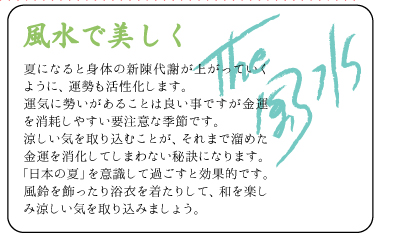 風水で美しく
The 風水
夏になると身体の新陳代謝が上がっていく
ように、運勢も活性化します。
運気に勢いがあることは良い事ですが金運
を消耗しやすい要注意な季節です。
涼しい気を取り込むことが、それまで溜めた
金運を消化してしまわない秘訣になります。
「日本の夏」を意識して過ごすと効果的です。
風鈴を飾ったり浴衣を着たりして、和を楽し
み涼しい気を取り込みましょう。